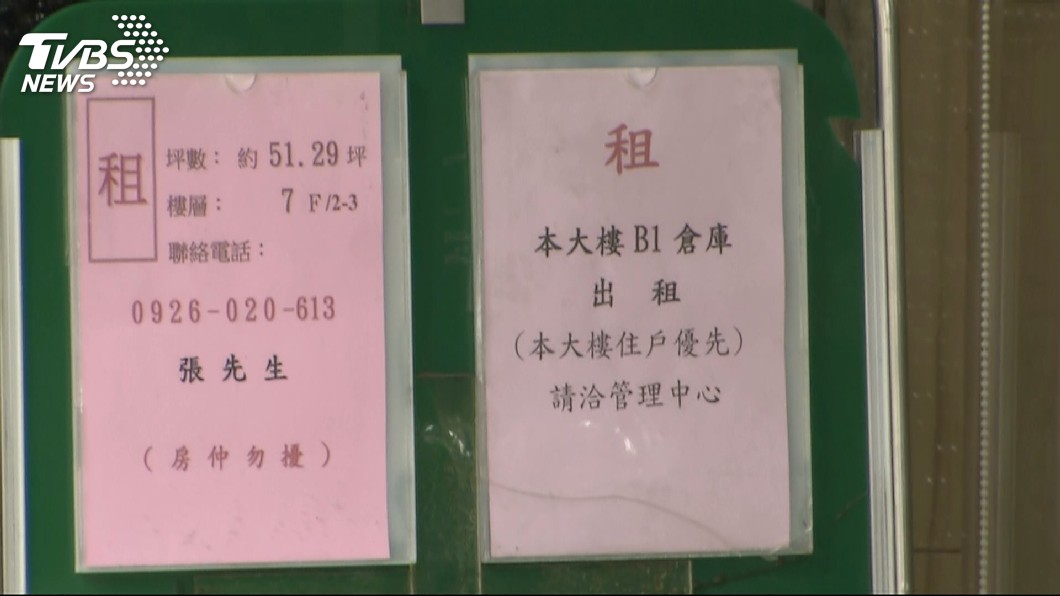 TVBS
NEWS
租
坪數： 約 51.29 坪
樓層： 7 F/2-3
聯絡電話：
0926-020-613
張先生
（房仲勿擾）
租
本大樓 B1 倉庫
出 租
（本大樓住戶優先）
請洽管理中心